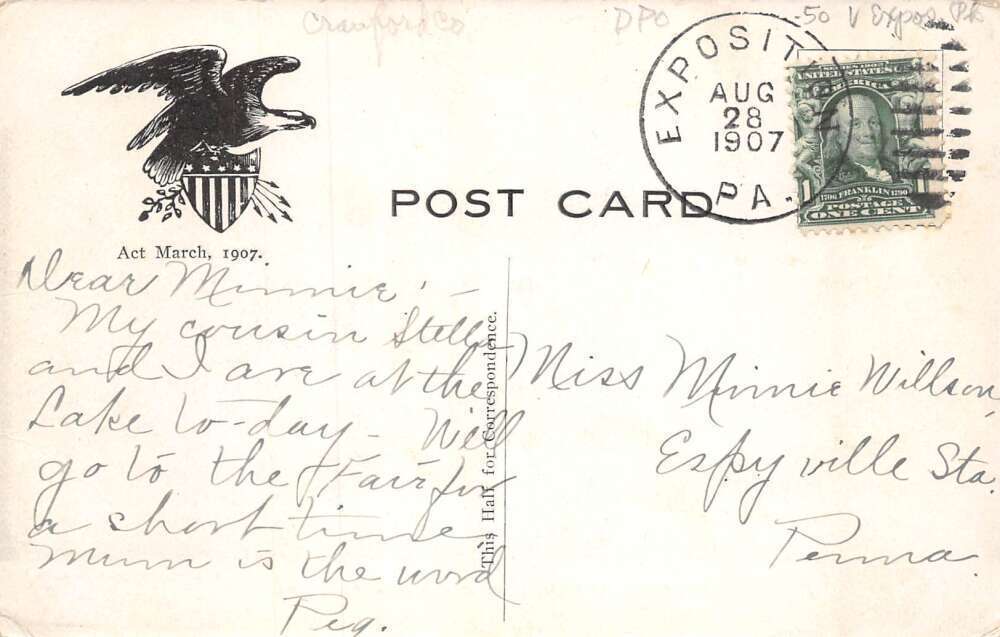 Crawford Co DPO -50 V Expos. Pk
EXPOSITION
AUG
28
1907
PA.
SERIES 1902
UNITED STATES OF AMERICA
1706 FRANKLIN 1790
POSTAGE
1 ONE CENT
POST CARD
Act March, 1907.
Dear Minnie:—
My cousin Stella
and I are at the
Lake to-day - Will
go to the Fair for
a short time
Mum is the word
Peg.
This Half for Correspondence.
Miss Minnie Willson,
Espyville Sta.
Penna.